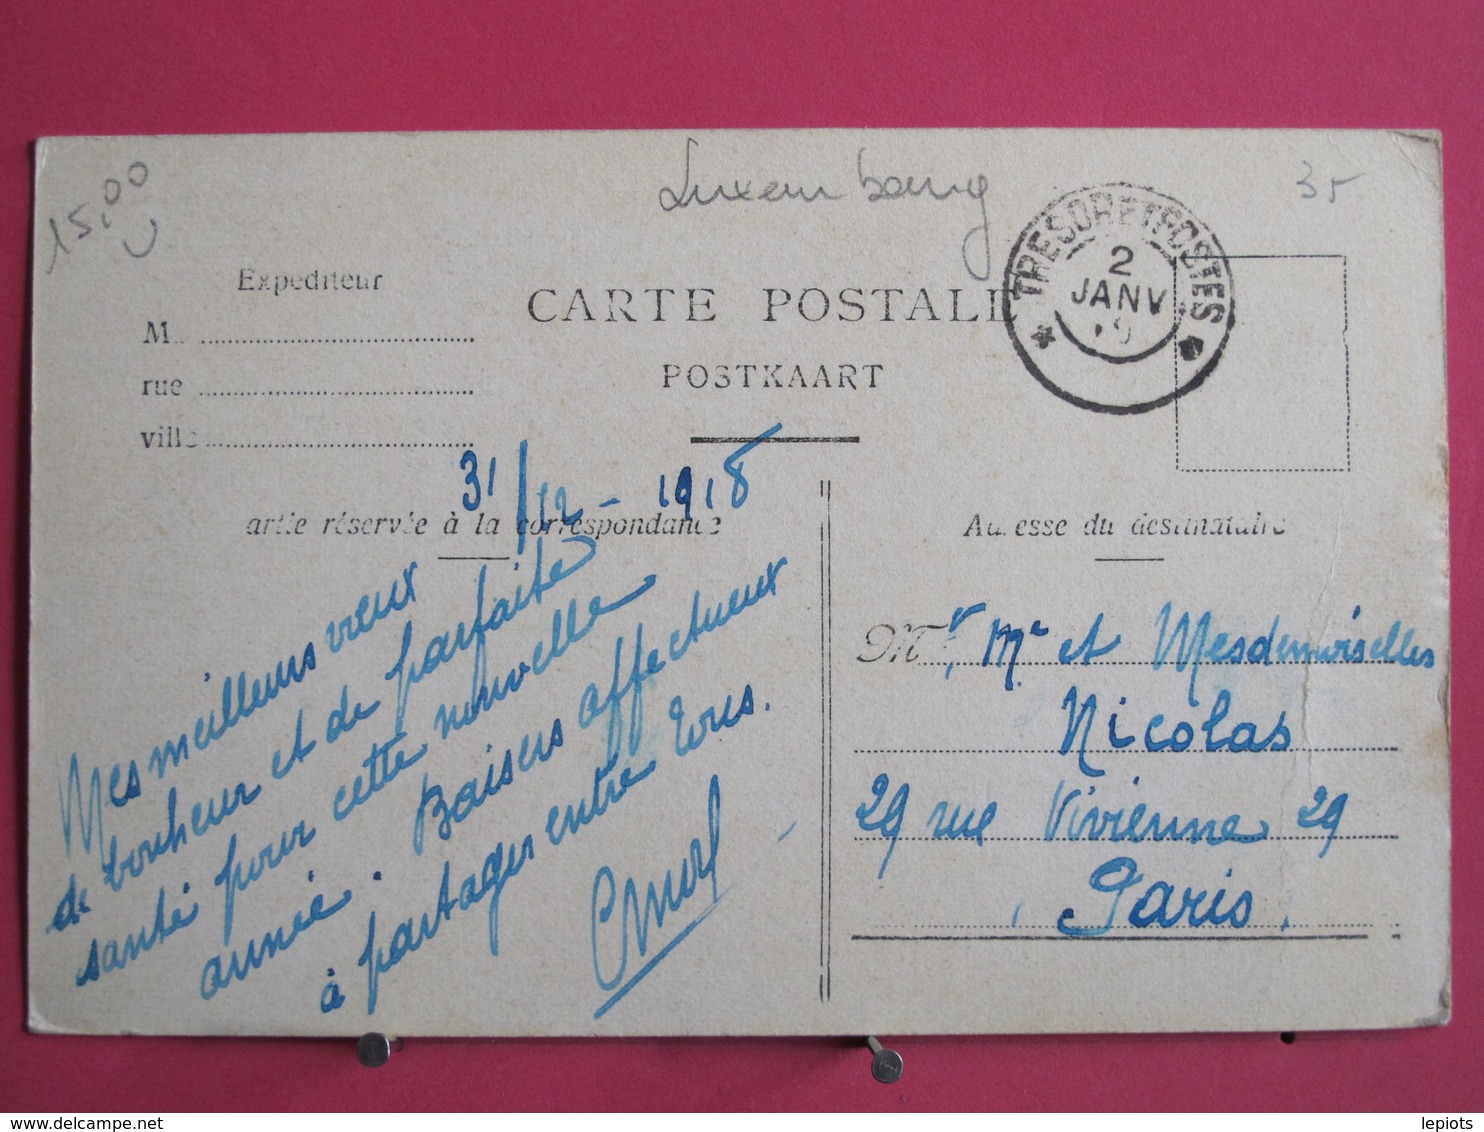 15,00
Luxembourg
35
Expediteur
M
rue
ville
CARTE POSTALE
POSTKAART
TRESOR ET POSTES
2
JANV
19
31/12-1918
artie réservée à la correspondance
Mes meilleurs vœux
de bonheur et de parfaite
santé pour cette nouvelle
année. Baisers affectueux
à partager entre tous.
Adresse du destinataire
Mr, Me et Mesdemoiselles
Nicolas
29 rue Vivienne 29
Paris
lepiots